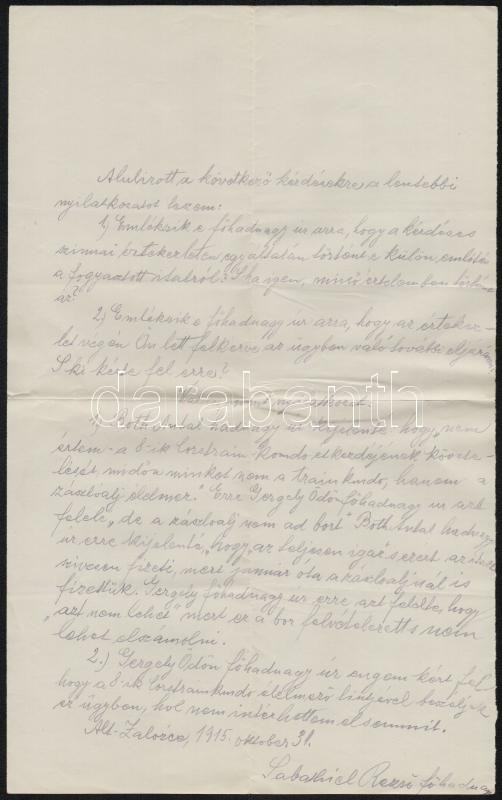 Alulirott a következő kérdésekre a lentebbi
nyilatkozatot teszem:
1) Emlékszik e főhadnagy úr arra, hogy a kérdéses
szinnai értekezleten egyáltatán történt e külön említés
a fogyasztott italról? S ha igen, minő értelemben történt
az?
2.) Emlékszik e főhadnagy úr arra, hogy az értekez-
let végén Ön lett felkérve az ügyben való további eljárásra
S ki kérte fel erre?
darabanth
nyilatkozat.
1) Roth Antal hadnagy úr kijelenté hogy „nem
értem a 8-ik komdo
lését midőn minket nem a trainkmdo, hanem a
zászlóalj élelmez." Erre Gergely Ödön főhadnagy ur azt
felelé „de a zászlóalj nem ad bort" Roth Antal hadnagy
ur erre kijelenté, hogy „az teljesen igaz s ezért az italt
szivesen fizeti, mert január óta a zászlóaljnál is
fizettük. Gergely főhadnagy ur erre azt felelte, hogy
„azt nem lehet" mert ez a bor felvételezett s nem
lehet elszámolni.
2.) Gergely Ödön főhadnagy úr engem kért fel
hogy a 8-ik kmdo élelmező tisztjével beszéljek
ez ügyben, hol nem intézhettem el semmit.
Alt-Zalozce, 1915. október 31.
Rezső főhadnagy